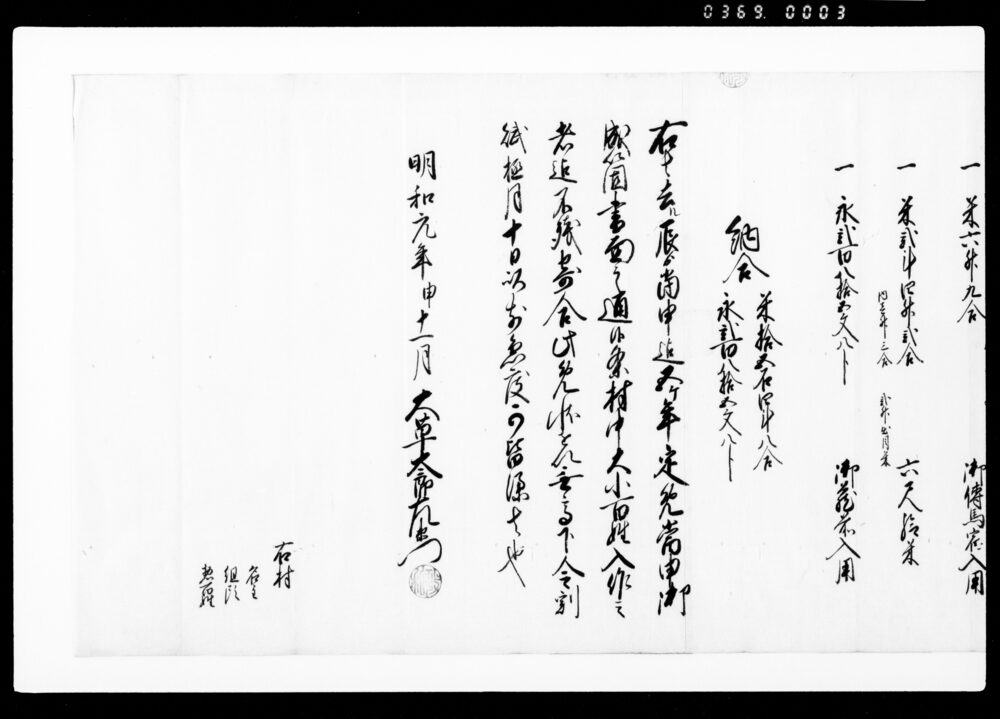 0369. 0003
一 米六升九合 御傳馬宿入用
一 米弐斗四升弐合 六尺給米
内 壱升三合 弐升 閏月米
一 永弐百八拾五文八分 御蔵前入用
納合 米拾五石四斗八合
永弐百八拾五文八分
右者去ル辰ゟ当申迄五ケ年定免当申御
成箇書面之通候条村中大小百姓入作之
者迄不残寄合此免状を以無高下令割
賦極月十日以前急度可皆済者也
明和元年申十一月 大草太郎左衛門
右村
名主
組頭
惣百姓